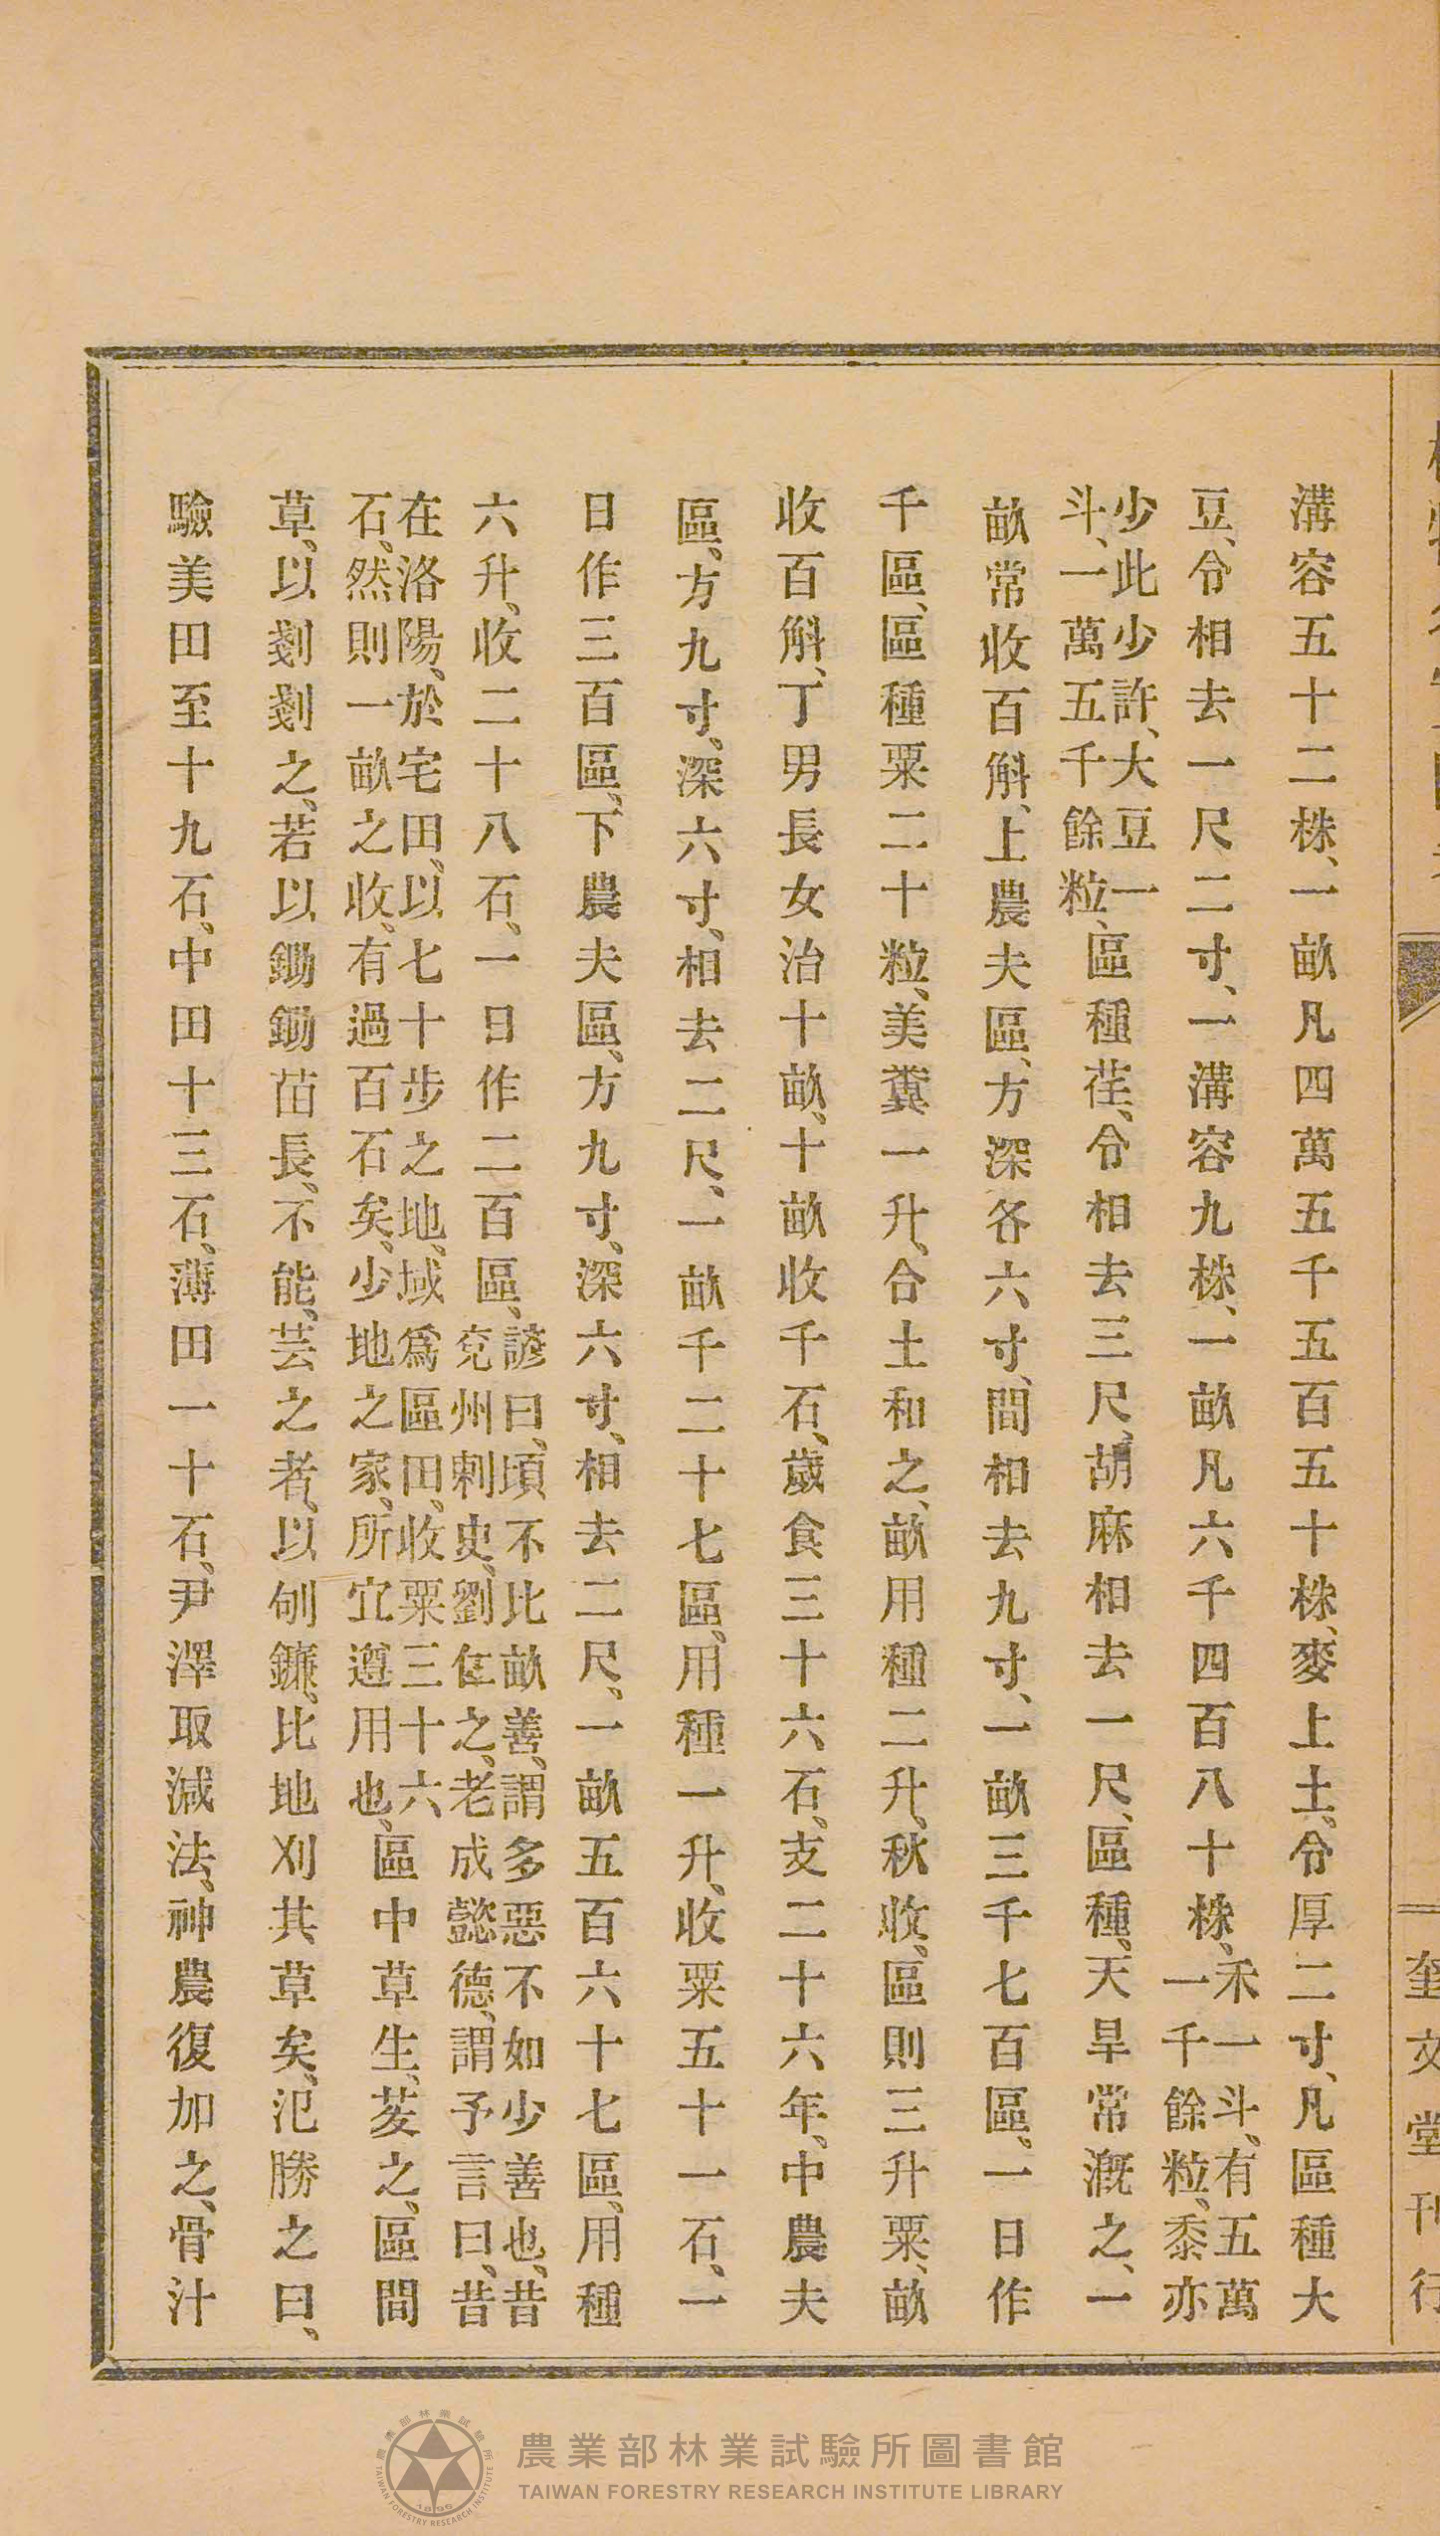 溝容五十二株、一畝凡四萬五千五百五十株、麥上土、令厚二寸、凡區種大
豆、令相去一尺二寸、一溝容九株、一畝凡六千四百八十株、
禾一斗、有五萬
一千餘粒、黍亦
少此少許、大豆一
斗、一萬五千餘粒、
區種荏、令相去三尺、胡麻相去一尺、區種、天旱常漑之、一
畝常收百斛、上農夫區、方深各六寸、間相去九寸、一畝三千七百區、一日作
千區、區種粟二十粒、美糞一升、合土和之、畝用種二升、秋收、區則三升粟、畝
收百斛、丁男長女治十畝、十畝收千石、歲食三十六石、支二十六年、中農夫
區、方九寸、深六寸、相去二尺、一畝千二十七區、用種一升、收粟五十一石、一
日作三百區、下農夫區、方九寸、深六寸、相去二尺、一畝五百六十七區、用種
六升、收二十八石、一日作二百區、
諺曰、頃不比畝善、謂多惡不如少善也、昔
兗州刺史劉仁之、老成懿德、謂予言曰、昔
在洛陽、於宅田、以七十步之地、域爲區田、收粟三十六
石、然則一畝之收、有過百石矣、少地之家、所宜遵用也、
區中草生、茇之、區間
草、以剗剗之、若以鋤鋤苗長、不能、芸之者、以刎鐮、比地刈其草矣、氾勝之曰、
驗美田至十九石、中田十三石、薄田一十石、尹澤取減法、神農復加之、骨汁
奎文堂刊行
農業部林業試驗所圖書館
TAIWAN FORESTRY RESEARCH INSTITUTE LIBRARY